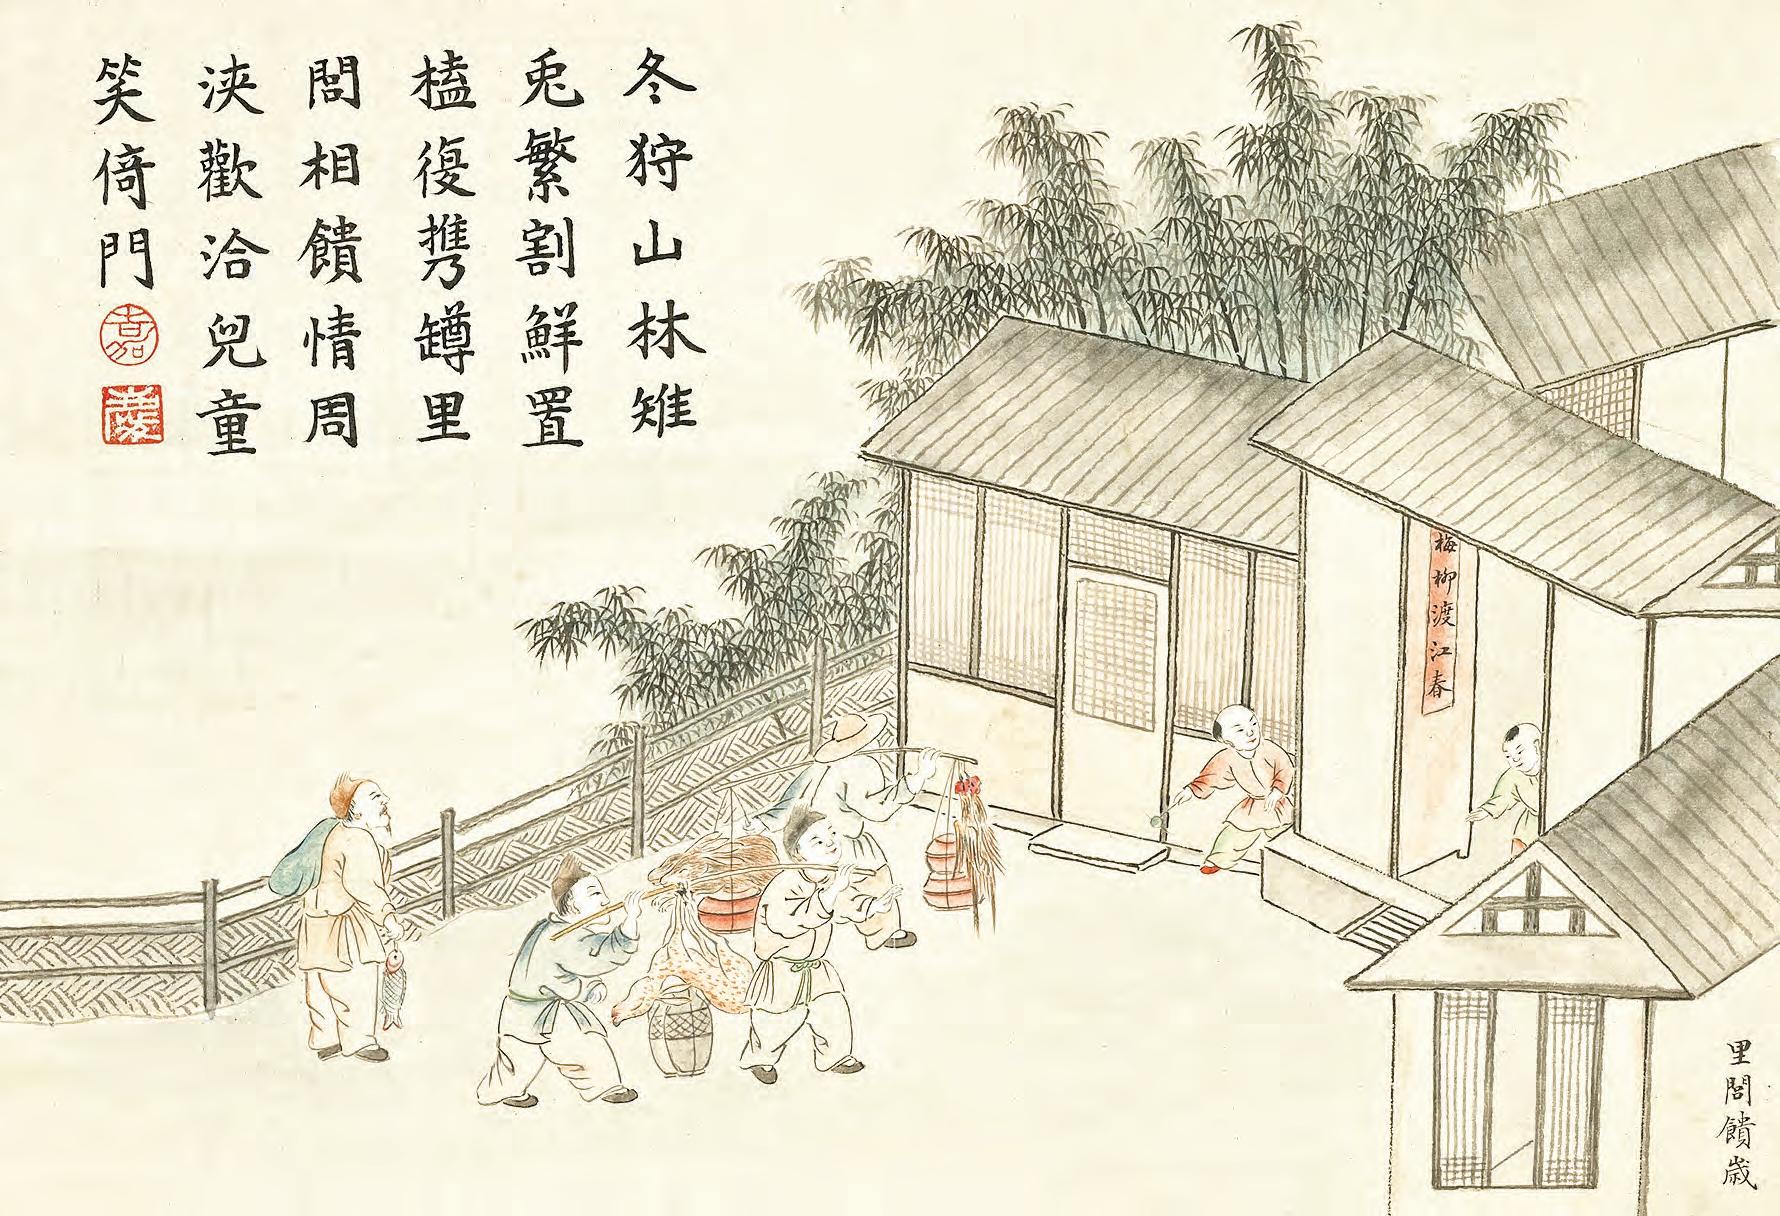 冬狩山林雉
兎繁割鮮置
榼復携罇里
閭相饋情周
浹歡洽兒童
笑倚門
梅柳渡江春
里閭饋歳